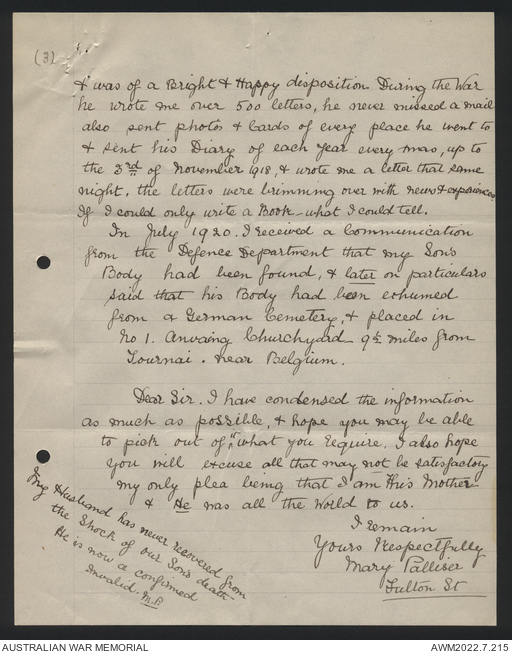 (3)
& was of a Bright & Happy disposition During the War
he wrote me over 500 letters, he never missed a mail
also sent photos & Cards of every place he went to
& sent his Diary of each year every Xmas, up to
the 3rd of November 1918, & wrote me a letter that same
night, the letters were brimming over with news & experiences
If I could only write a Book - what I could tell.
In July 1920. I received a Communication
from the Defence Department that my Son's
Body had been found, & later on particulars
said that his Body had been exhumed
from a German Cemetery, & placed in
No 1. Anvaing Churchyard 9½ miles from
Tournai. near Belgium.
Dear Sir. I have condensed the information
as much as possible, & hope you may be able
to pick out of, "it" what you require. I also hope
you will excuse all that may not be satisfactory
my only plea being that I am His Mother
& He was all the World to us.
I remain
Yours Respectfully
Mary Palliser
Fulton St
My Husband has never recovered from
the Shock of our Son's death
He is now a confirmed
Invalid. M.P.
AUSTRALIAN WAR MEMORIAL
AWM2022.7.215